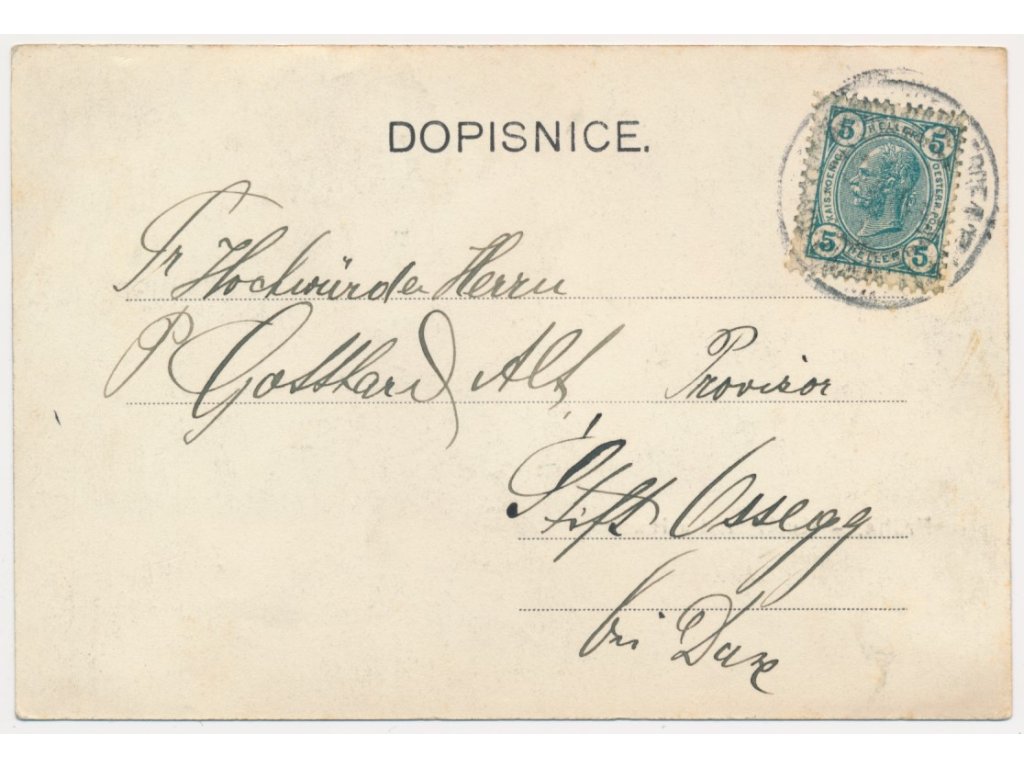 DOPISNICE.
5 HELLER 5
KAIS. KOENIGL. OESTERR. POST
5 HELLER 5
Sr Hochwürden Herrn
P Gotthard Alt, Provisor
Stift Ossegg
bei Dux